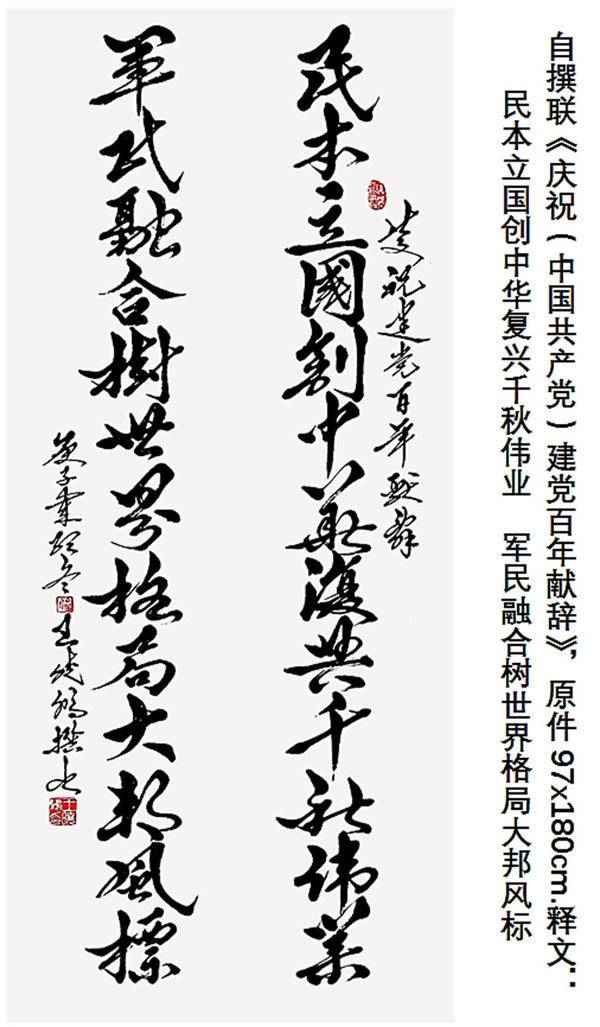 自撰联《庆祝（中国共产党）建党百年献辞》，原件97x180cm.释文：
民本立国创中华复兴千秋伟业 军民融合树世界格局大邦风标
慶祝建党百年献辞
民本立國創中華復興千秋偉業
軍民融合樹世界格局大邦風標
庚子
撰书